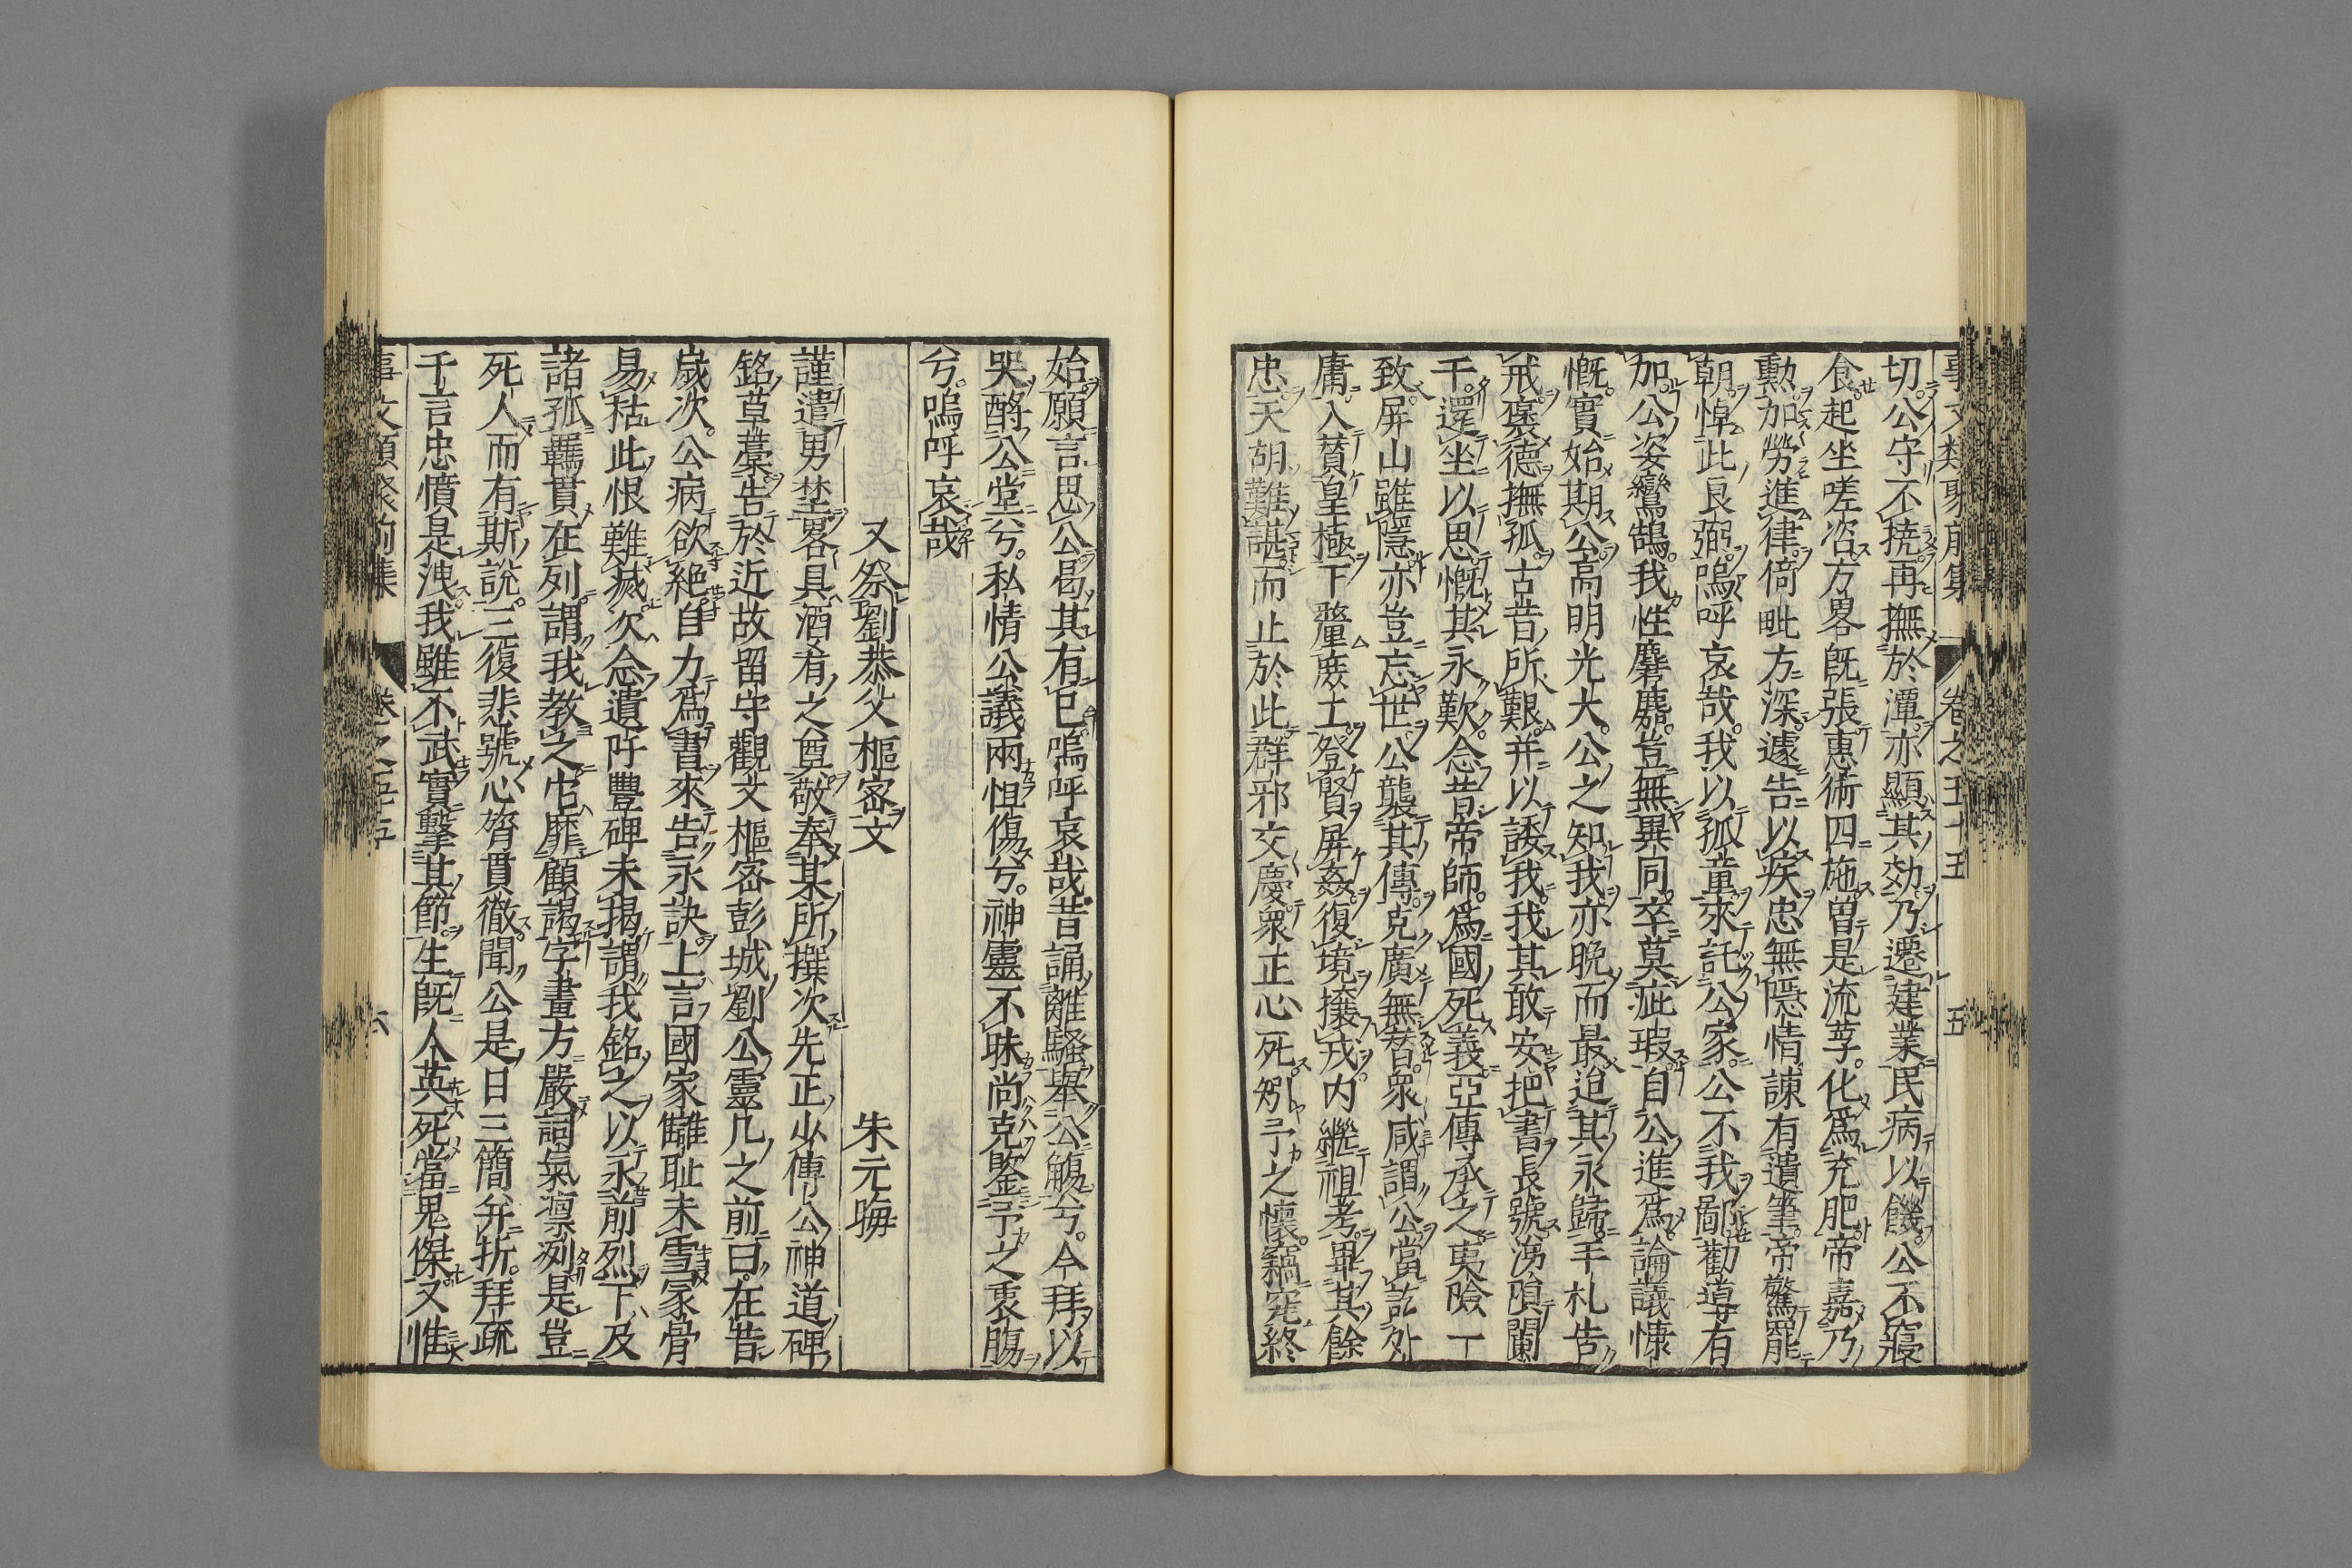 事文類聚前集 卷之五十五 五
切公守不撓再撫於潭亦顯其効乃遷建業民病以饑公不寢
食起坐嗟咨方畧旣張惠術四施曽是流莩化爲充肥帝嘉乃
勲加勞進律倚毗方深遽告以疾忠無隱情諫有遺筆帝驚罷
朝悼此良弼嗚呼哀哉我以孤童來託公家公不我鄙勸導有
加公姿鸞鵠我性麋麕豈無異同卒莫疵瑕自公進爲論議慷
慨實始期公高明光大公之知我亦晩而最迨其永歸手札告
戒褒德撫孤古昔所艱并以諉我我其敢安把書長號涕隕闌
干還坐以思慨其永歎念昔帝師爲國死義亞傅承之夷險一
致屏山雖隱亦豈忘世公襲其傳克廣無替衆咸謂公當訖外
庸入賛皇極下釐庶工登賢屏姦復境攘戎内繼祖考畢其餘
忠天胡難諶而止於此群邪交慶衆正心死矧予之懷竊寃終
始願言思公曷其有已嗚呼哀哉昔誦離騷舉公觴兮今拜以
哭酹公堂兮私情公議兩怛傷兮神靈不昧尚克鑒予之衷膓
兮嗚呼哀哉
又祭劉恭父樞密文 朱元晦
謹遣男埜畧具酒有之奠敬奉某所撰次先正少傅公神道碑
銘草藁告於近故留守觀文樞密彭城劉公靈几之前曰在昔
歲次公病欲絶自力爲書來告永訣上言國家讎耻未雪冢骨
易秙此恨難㓕次念遺阡豐碑未揭謂我銘之以永前烈下及
諸孤羈貫在列謂我教之它靡顧謁字畫方嚴詞氣凛冽是豈
死人而有斯說三復悲號心膂貫徹聞公是日三簡并折拜疏
千言忠憤是洩我雖不武實擊其節生旣人英死當鬼傑又惟
事文類聚前集 卷之五十五 六